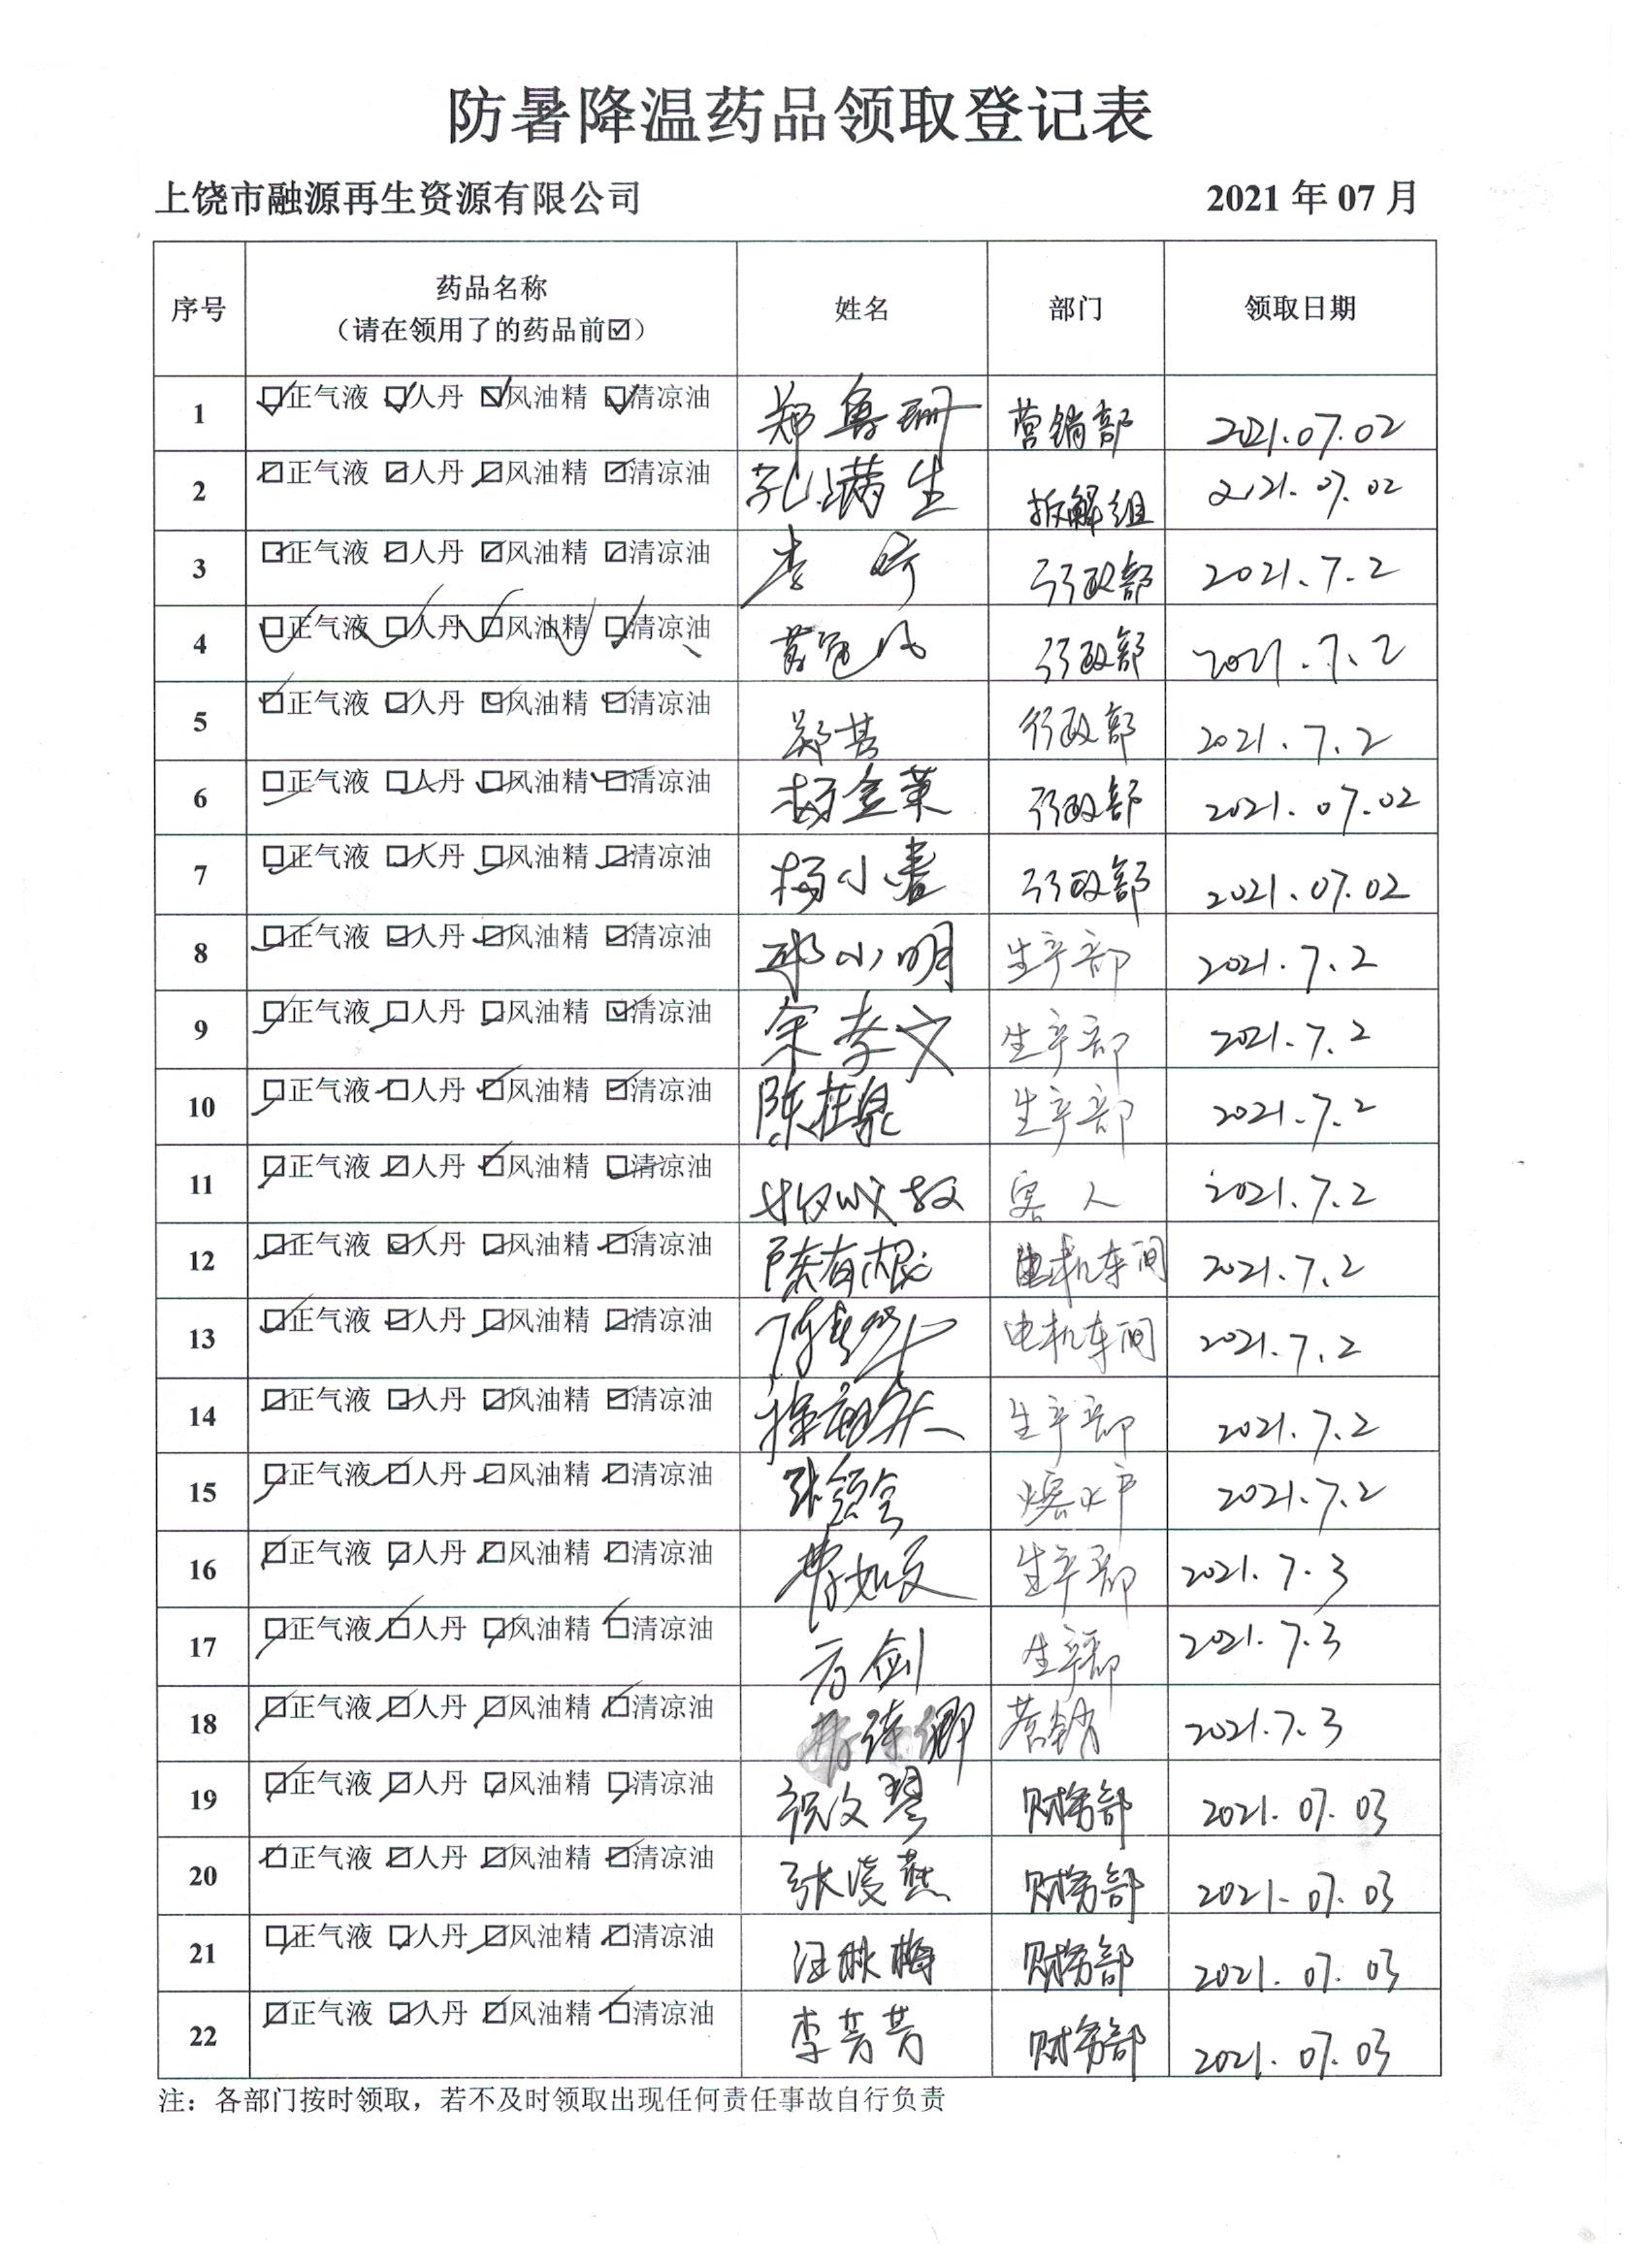 防暑降温药品领取登记表
上饶市融源再生资源有限公司 2021年07月
序号 药品名称 姓名 部门 领取日期
（请在领用了的药品前☑）
1 ☑正气液 ☑人丹 ☑风油精 ☑清凉油 郑鲁珊 营销部 2021.07.02
2 ☑正气液 ☑人丹 ☑风油精 ☑清凉油 孔满生 拆解组 2021.07.02
3 ☑正气液 ☑人丹 ☑风油精 ☑清凉油 李 行政部 2021.7.2
4 ☑正气液 ☑人丹 ☑风油精 ☑清凉油 行政部 2021.7.2
5 ☑正气液 ☑人丹 ☑风油精 ☑清凉油 郑芸 行政部 2021.7.2
6 ☑正气液 ☑人丹 ☑风油精 ☑清凉油 杨金莱 行政部 2021.07.02
7 ☑正气液 ☑人丹 ☑风油精 ☑清凉油 杨小春 行政部 2021.07.02
8 ☑正气液 ☑人丹 ☑风油精 ☑清凉油 邓小明 生产部 2021.7.2
9 ☑正气液 ☑人丹 ☑风油精 ☑清凉油 余孝文 生产部 2021.7.2
10 ☑正气液 ☑人丹 ☑风油精 ☑清凉油 陈在泉 生产部 2021.7.2
11 ☑正气液 ☑人丹 ☑风油精 ☑清凉油 客人 2021.7.2
12 ☑正气液 ☑人丹 ☑风油精 ☑清凉油 陈有根 电机车间 2021.7.2
13 ☑正气液 ☑人丹 ☑风油精 ☑清凉油 电机车间 2021.7.2
14 ☑正气液 ☑人丹 ☑风油精 ☑清凉油 生产部 2021.7.2
15 ☑正气液 ☑人丹 ☑风油精 ☑清凉油 2021.7.2
16 ☑正气液 ☑人丹 ☑风油精 ☑清凉油 费如友 生产部 2021.7.3
17 ☑正气液 ☑人丹 ☑风油精 ☑清凉油 方剑 生产部 2021.7.3
18 ☑正气液 ☑人丹 ☑风油精 ☑清凉油 营销 2021.7.3
19 ☑正气液 ☑人丹 ☑风油精 ☑清凉油 祝文琴 财务部 2021.07.03
20 ☑正气液 ☑人丹 ☑风油精 ☑清凉油 张凌燕 财务部 2021.07.03
21 ☑正气液 ☑人丹 ☑风油精 ☑清凉油 汪秋梅 财务部 2021.07.03
22 ☑正气液 ☑人丹 ☑风油精 ☑清凉油 李芳芳 财务部 2021.07.03
注：各部门按时领取，若不及时领取出现任何责任事故自行负责